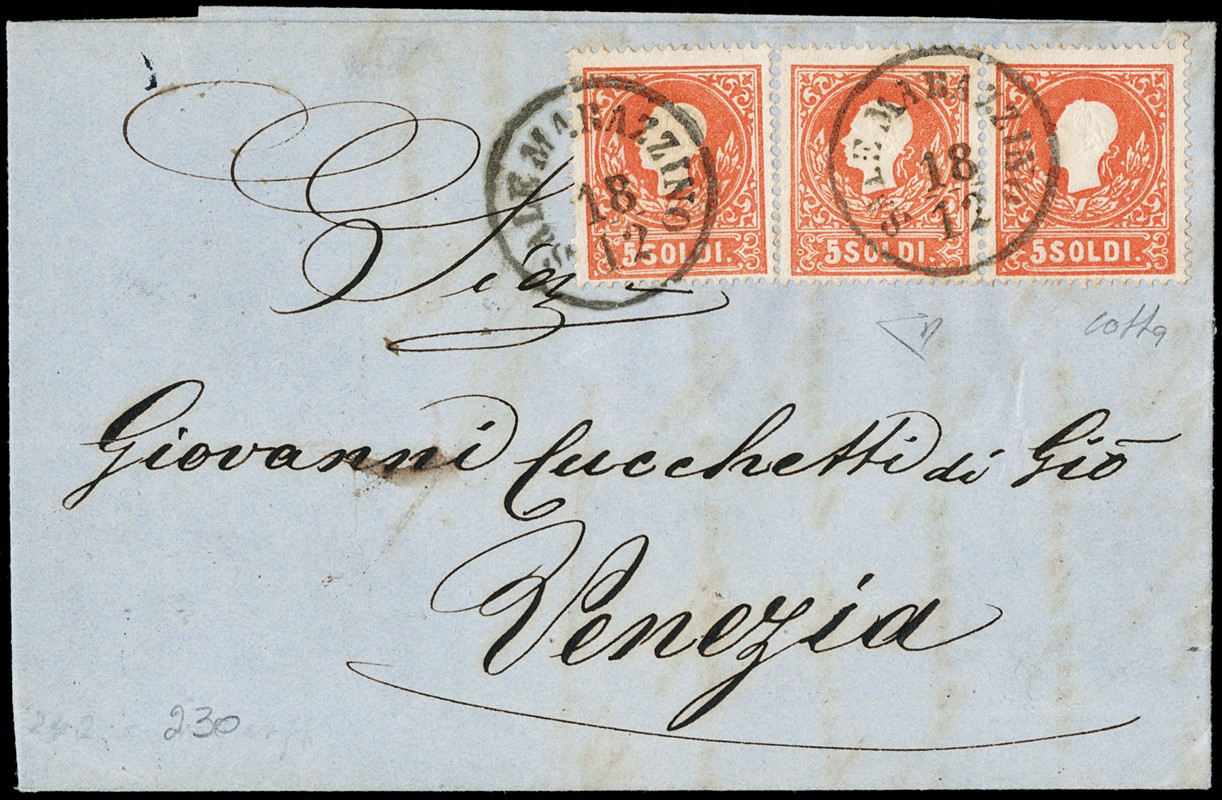 SALE MARAZZINO
18
12
5 SOLDI.
5 SOLDI.
SALE MARAZZINO
18
12
5 SOLDI.
Giovanni Cucchetti di Gio
Venezia
230